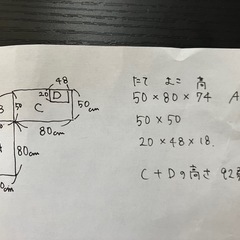 たて よこ 高
50×80×74 A
50×50
20×48×18.
C+Dの高さ 92
48
20 D
50
C
50cm
80cm
80cm
cm